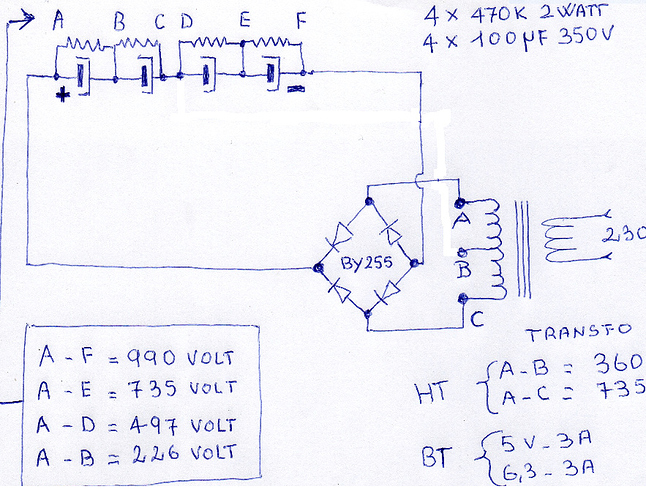 A B C D E F
4 x 470K 2WATT
4 x 100µF 350V
+ -
A
230
BY255
B
C
TRANSFO
A - F = 990 VOLT
A - E = 735 VOLT
A - D = 497 VOLT
A - B = 226 VOLT
HT
A - B = 360
A - C = 735
BT
5 V - 3A
6,3 - 3A